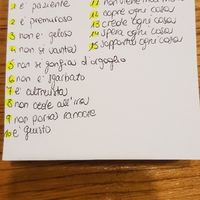 1 è paziente
2 è premuroso
3 non è geloso
4 non si vanta
5 non si gonfia d'orgoglio
6 non è sgarbato
7 è altruista
8 non cede all'ira
9 non porta rancore
10 è giusto
12 copre ogni cosa
13 crede ogni cosa
14 spera ogni cosa
15 sopporta ogni cosa